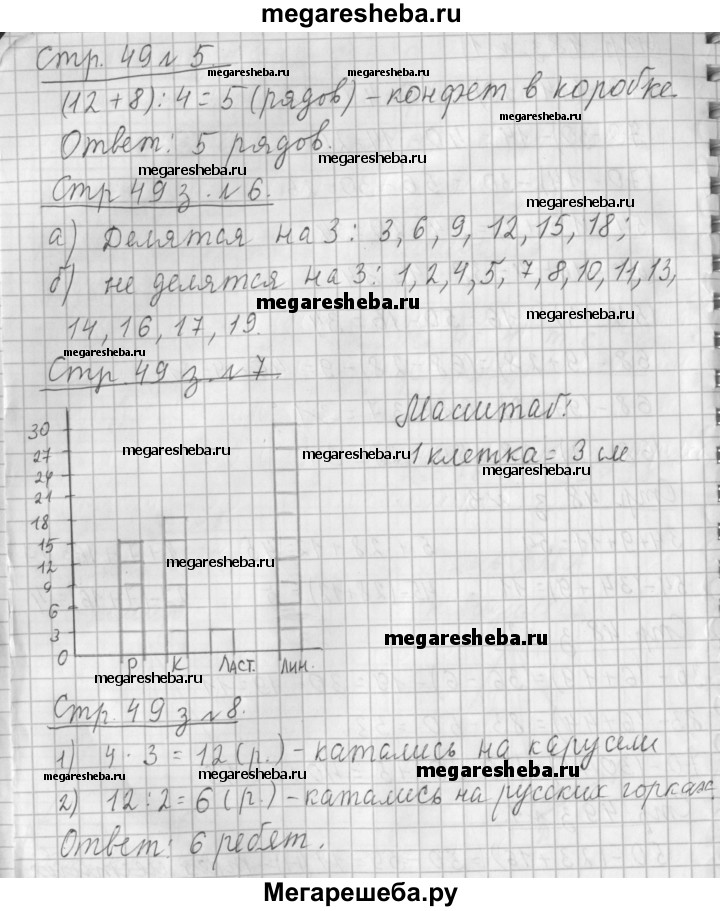 megaresheba.ru
Стр. 49 № 5.
megaresheba.ru megaresheba.ru
(12 + 8) : 4 = 5 (рядов) - конфет в коробке.
megaresheba.ru
Ответ: 5 рядов.
megaresheba.ru
Стр 49 з. № 6.
megaresheba.ru
а) Делятся на 3: 3, 6, 9, 12, 15, 18;
б) не делятся на 3: 1, 2, 4, 5, 7, 8, 10, 11, 13,
megaresheba.ru
megaresheba.ru
14, 16, 17, 19.
megaresheba.ru
Стр. 49 з № 7.
Масштаб:
1 клетка = 3 см
megaresheba.ru megaresheba.ru
megaresheba.ru
30
27
24
21
18
15
12
9
6
3
0
megaresheba.ru
megaresheba.ru
Р К Ласт. Лин.
megaresheba.ru
Стр. 49 з № 8.
megaresheba.ru
1) 4 · 3 = 12 (р.) - катались на карусели
megaresheba.ru megaresheba.ru megaresheba.ru
2) 12 : 2 = 6 (р.) - катались на русских горках
megaresheba.ru
Ответ: 6 ребят.
Мегарешеба.ру